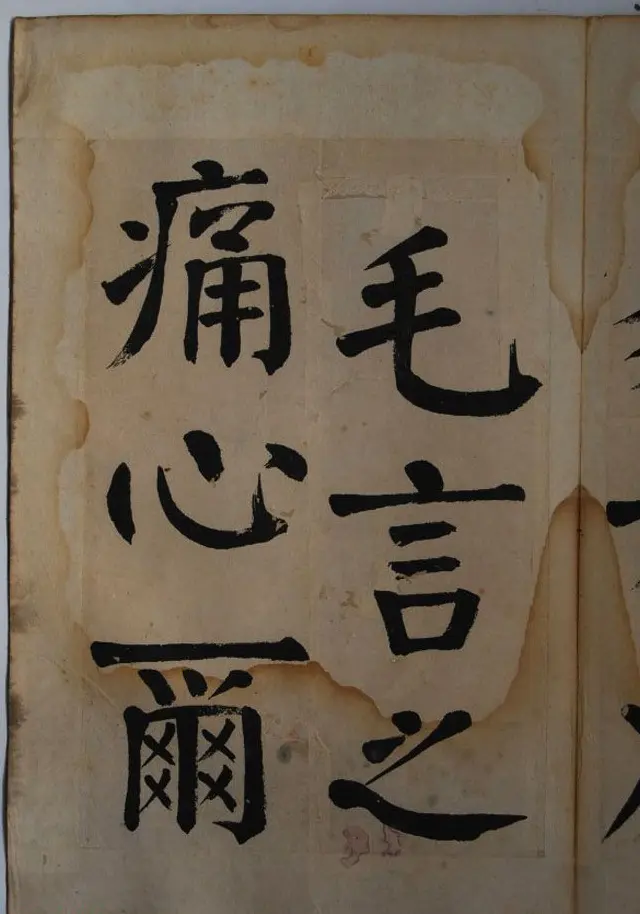 毛言之
痛心爾